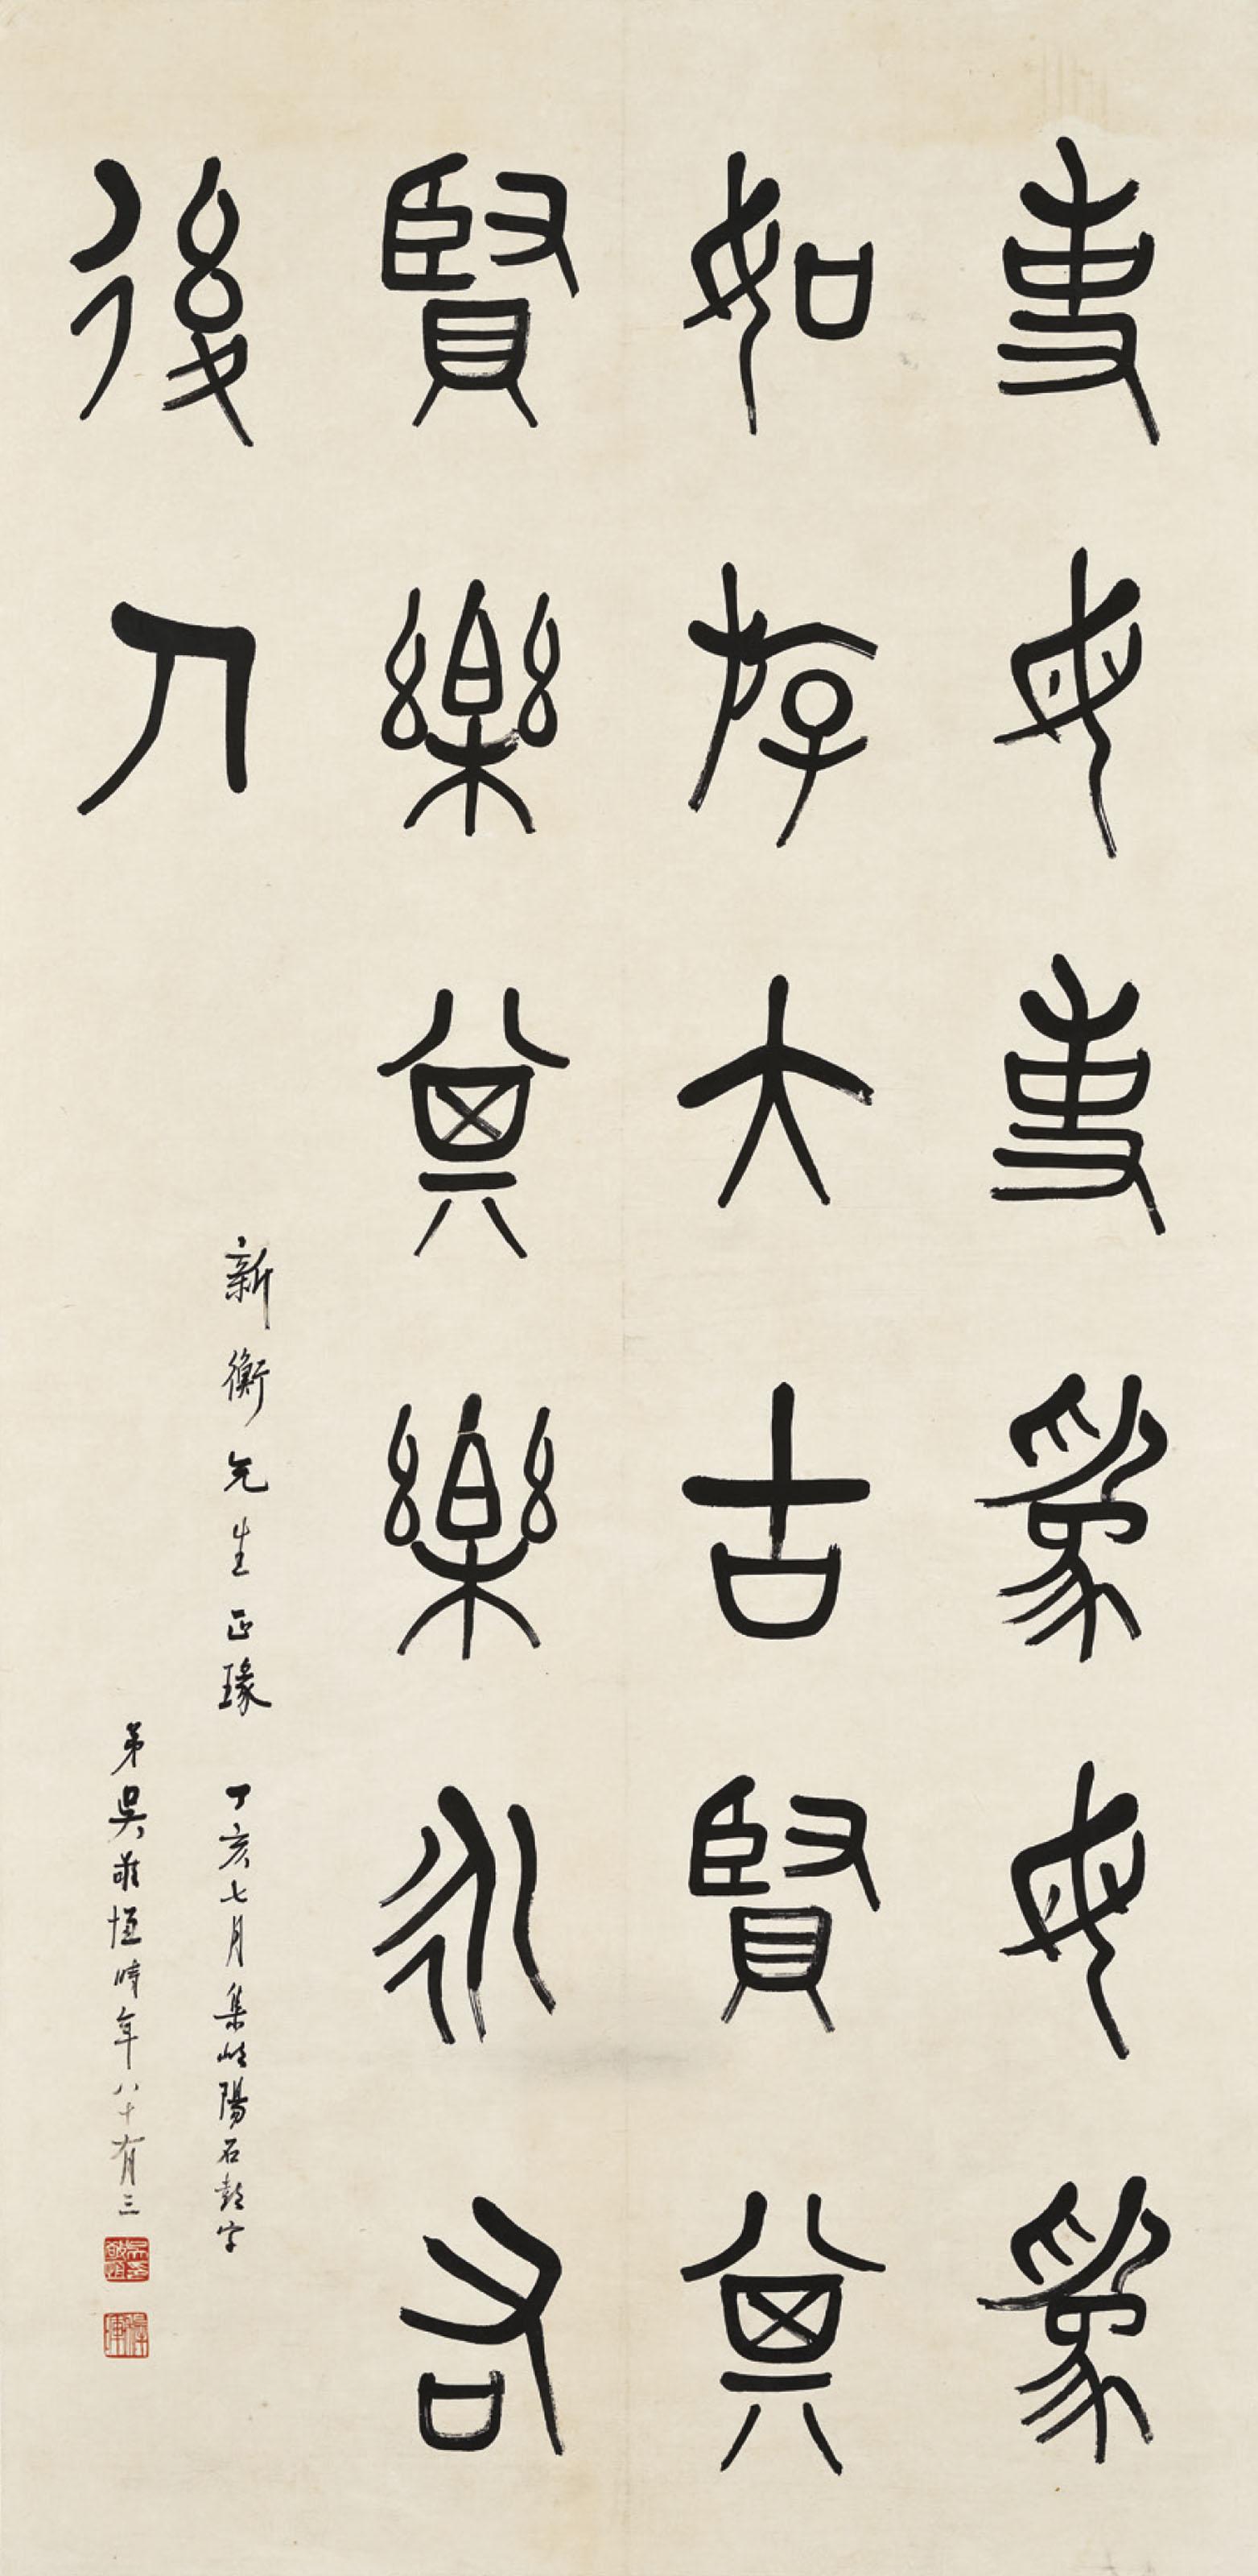 事毋事為毋為
如存大古賢其
賢樂其樂永右
後人
新衡先生正瑑 丁亥七月集岐陽石鼓字
弟吳敬恆時年八十有三